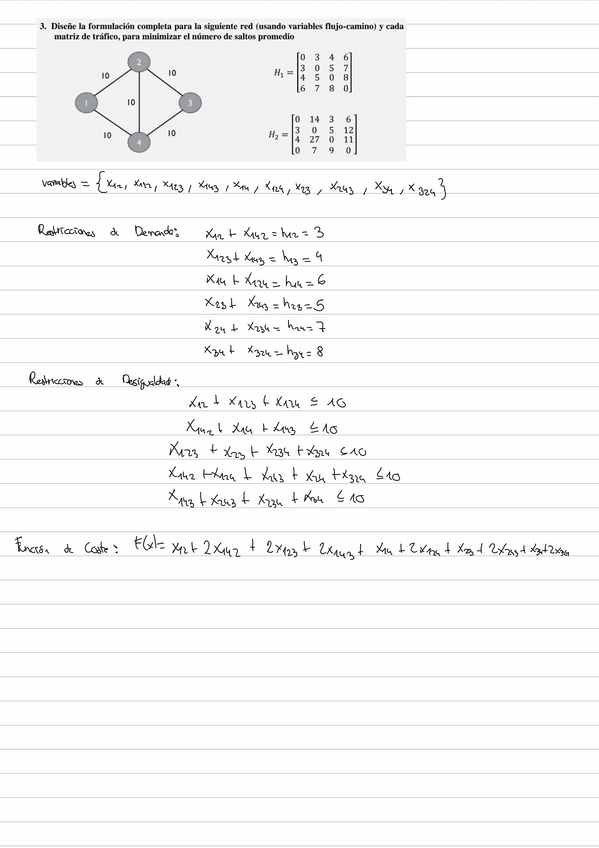 3. Diseñe la formulación completa para la siguiente red (usando variables flujo-camino) y cada
matriz de tráfico, para minimizar el número de saltos promedio
2
10
10
1
10
3
10
10
4
H₁ =
0 3 4 6
3 0 5 7
4 5 0 8
6 7 8 0
H₂ =
0 14 3 6
3 0 5 12
4 27 0 11
0 7 9 0
variables = { x₁₂, x₁₄₂, x₁₂₃, x₁₄₃, x₁₄, x₁₂₄, x₂₃, x₂₄₃, x₃₄, x₃₂₄ }
Restricciones de Demanda: x₁₂ + x₁₄₂ = h₁₂ = 3
x₁₂₃ + x₁₄₃ = h₁₃ = 4
x₁₄ + x₁₂₄ = h₁₄ = 6
x₂₃ + x₂₄₃ = h₂₃ = 5
x₂₄ + x₂₃₄ = h₂₄ = 7
x₃₄ + x₃₂₄ = h₃₄ = 8
Restricciones de Desigualdad:
x₁₂ + x₁₂₃ + x₁₂₄ ≤ 10
x₁₄₂ + x₁₄ + x₁₄₃ ≤ 10
x₁₂₃ + x₂₃ + x₂₃₄ + x₃₂₄ ≤ 10
x₁₄₂ + x₁₂₄ + x₂₄₃ + x₂₄ + x₃₂₄ ≤ 10
x₁₄₃ + x₂₄₃ + x₂₃₄ + x₃₄ ≤ 10
Función de Coste: F(x) = x₁₂ + 2x₁₄₂ + 2x₁₂₃ + 2x₁₄₃ + x₁₄ + 2x₁₂₄ + x₂₃ + 2x₂₄₃ + x₃₄ + 2x₃₂₄